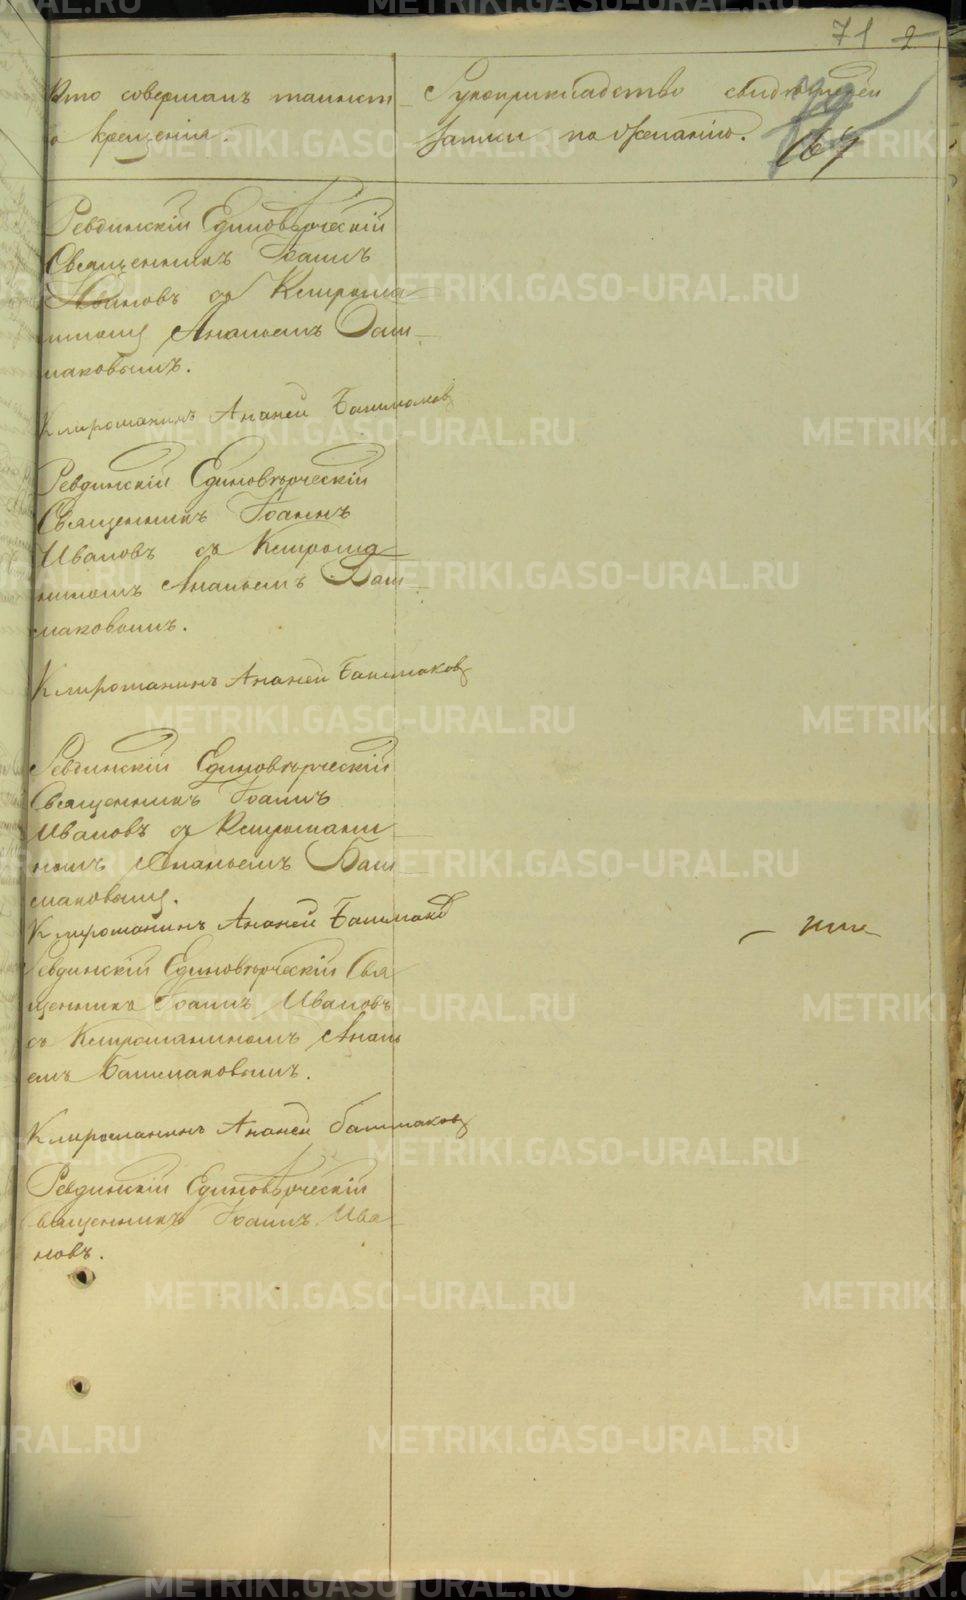 71 2
Кто совершалъ таинст-
о крещенія.
Рукоприкладство свидѣтелей
записи по желанію.
169
Ревдинскій Единовѣрческій
Священникъ Іоаннъ
Ивановъ съ Клироша
ниномъ Ананьемъ Баш-
маковымъ.
Клирошанинъ Ананей Башмаковъ
Ревдинскій Единовѣрческій
Священникъ Іоаннъ
Ивановъ съ Клироша
ниномъ Ананьемъ Баш-
маковымъ.
Клирошанинъ Ананей Башмаковъ
Ревдинскій Единовѣрческій
Священникъ Іоаннъ
Ивановъ съ Клирошани-
номъ Ананьемъ Баш-
маковымъ.
Клирошанинъ Ананей Башмаковъ
Ревдинскій Единовѣрческій Свя
щенникъ Іоаннъ Ивановъ
съ Клирошаниномъ Анань
емъ Башмаковымъ.
Клирошанинъ Ананей Башмаковъ
Ревдинскій Единовѣрческій
вященникъ Іоаннъ Ива-
новъ.
METRIKI.GASO-URAL.RU